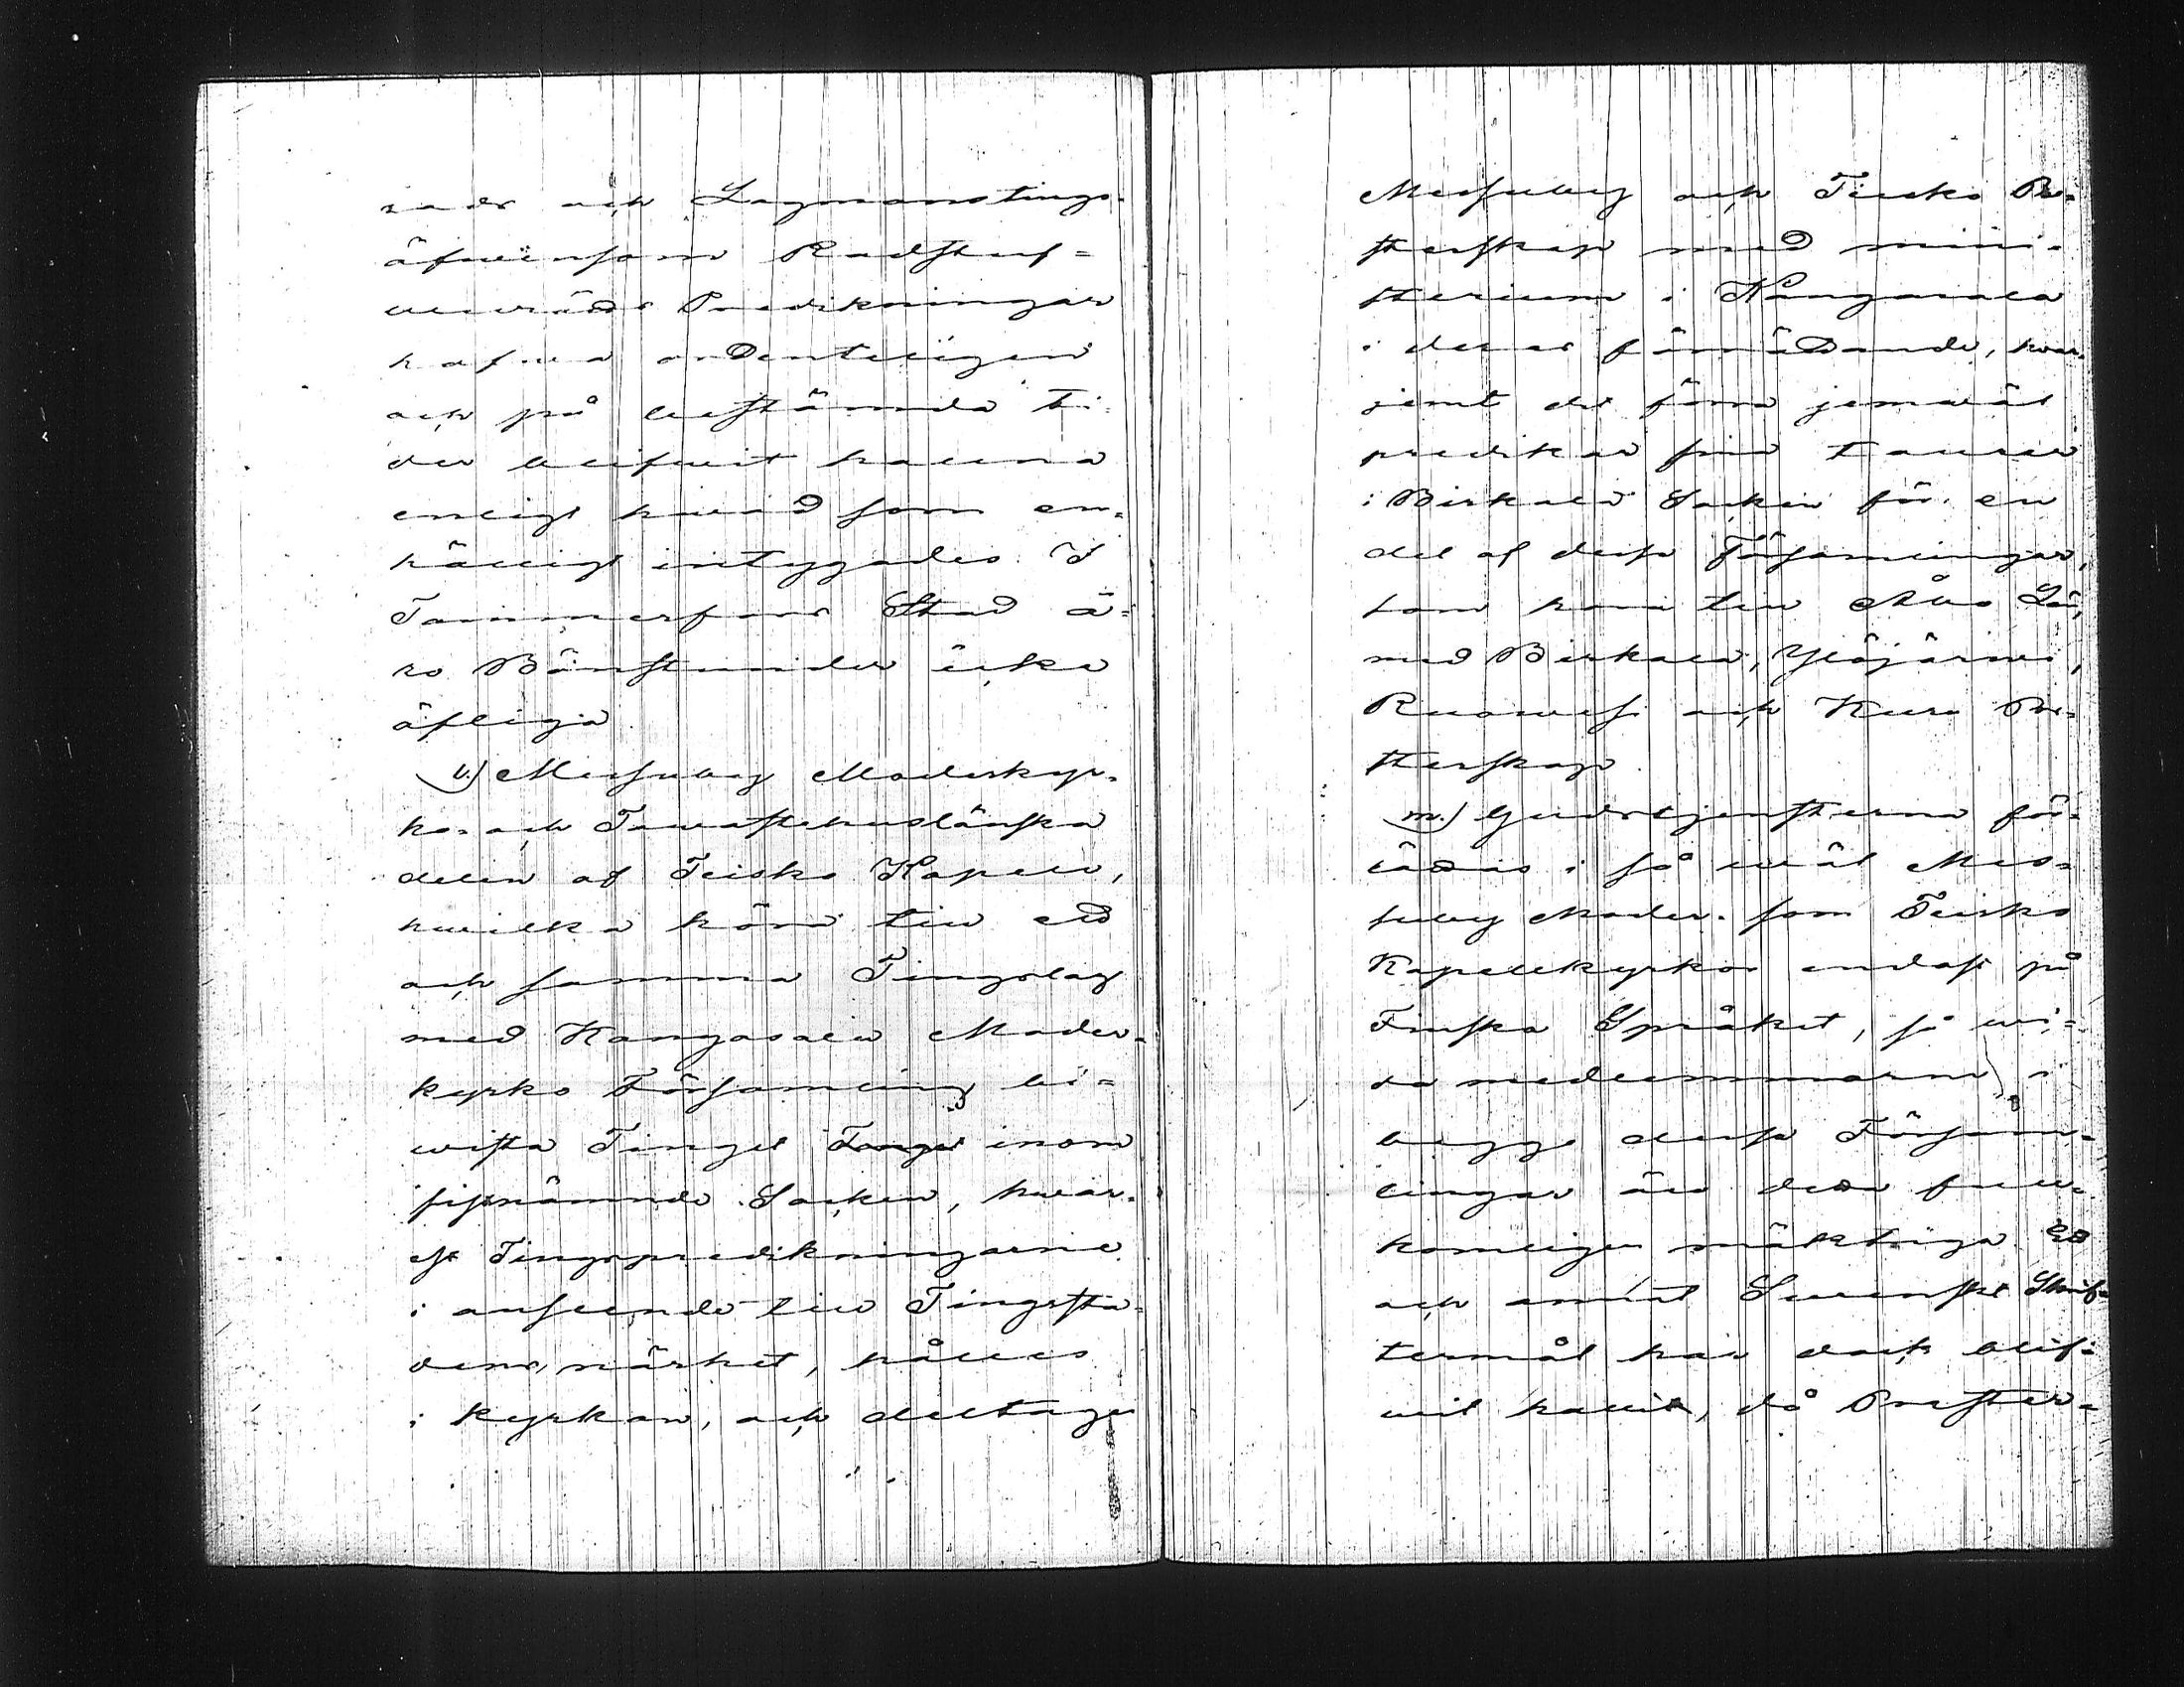 rads och Lagmanstings-
äfwensom Rådstuf-
Predikningar
hafwa ordenteligen
och på bestämda ti-
der blifwit hållna
enligt hwad som en-
hälligt intygades. I
Tammerfors Stad ä-
ro Bönstunder icke
öfliga.
l.) Messuby Moderkyr-
ko- och Tawastehuslänska
delen af Teisko Kapell,
hwilka höra till ett
och samma Tingslag
med Kangasala Moder-
kyrko Församling bi-
wista Tinget inom
sistnämnde Socken, hwar-
est Tingspredikningarne
i anseende till Tingssta-
dens närhet, hålles
i Kyrkan, och deltaga
Messuby och Teisko Pre-
sterskap med mini-
sterium i Kangasala
i deras förrättande, hwar-
jemt det förra jemwäl
predikar
i Birkala Socken för en
del af dessa Församlingar,
som höra till Åbo Län,
med Birkala, Ylöjärwi,
Ruowesi och Kuru Pre-
sterskap.
m.) Gudstjensterna för-
rättas i så wäl Mes-
suby Moder- som Teisko
Kapellkyrkor endast på
Finska Språket, så wi-
da medlemmarne i
begge dessa Försam-
lingar äro detta full-
komligen mäktiga. Ett
och annat Swenskt Skrif-
termål har dock blif-
wit hållit, då Prester-